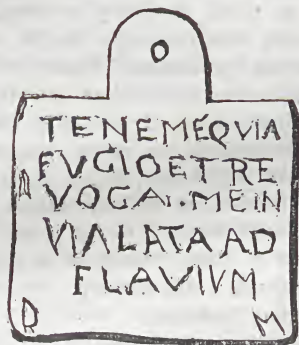 TENEMEQVIA
FVGIOETRE
VOCAI.MEIN
VIALATAAD
FLAVIVM
D M